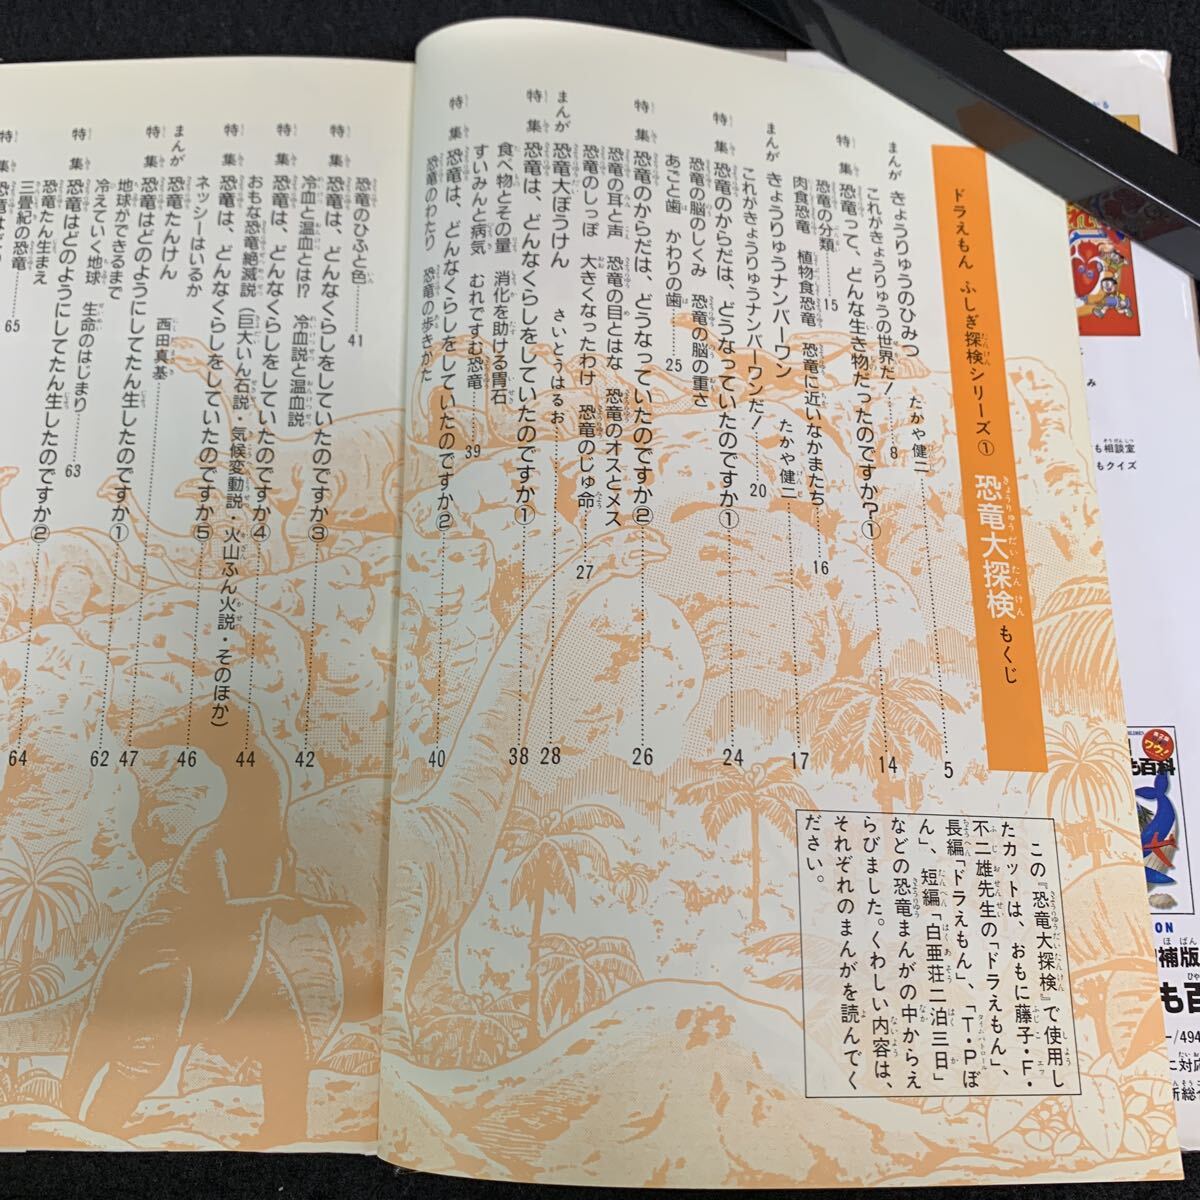 ドラえもん ふしぎ探検シリーズ① 恐竜大探検 もくじ
まんが きょうりゅうのひみつ たかや健二 5
これがきょうりゅうの世界だ！ 8
特集 恐竜って、どんな生き物だったのですか？① 14
恐竜の分類 15
肉食恐竜 植物食恐竜 恐竜に近いなかまたち 16
まんが きょうりゅうナンバーワン たかや健二 17
これがきょうりゅうナンバーワンだ！ 20
特集 恐竜のからだは、どうなっていたのですか① 24
恐竜の脳のしくみ 恐竜の脳の重さ
あごと歯 かわりの歯 25
特集 恐竜のからだは、どうなっていたのですか② 26
恐竜の耳と声 恐竜の目とはな 恐竜のオスとメス
恐竜のしっぽ 大きくなったわけ 恐竜のじゅ命 27
まんが 恐竜大ぼうけん さいとうはるお 28
特集 恐竜は、どんなくらしをしていたのですか① 38
食べ物とその量 消化を助ける胃石
すいみんと病気 むれですむ恐竜 39
特集 恐竜は、どんなくらしをしていたのですか② 40
恐竜のわたり 恐竜の歩きかた
恐竜のひふと色 41
特集 恐竜は、どんなくらしをしていたのですか③ 42
冷血と温血とは!? 冷血説と温血説
特集 恐竜は、どんなくらしをしていたのですか④ 44
おもな恐竜絶滅説（巨大いん石説・気候変動説・火山ふん火説・そのほか）
特集 恐竜は、どんなくらしをしていたのですか⑤ 46
ネッシーはいるか
まんが 恐竜たんけん 西田真基 47
特集 恐竜はどのようにしてたん生したのですか① 62
地球ができるまで
冷えていく地球 生命のはじまり 63
特集 恐竜はどのようにしてたん生したのですか② 64
恐竜たん生まえ
三畳紀の恐竜 65
特集
この『恐竜大探検』で使用し
たカットは、おもに藤子・F・
不二雄先生の「ドラえもん」、
長編「ドラえもん」、「T・Pぼ
ん」、短編「白亜荘二泊三日」
などの恐竜まんがの中からえ
らびました。くわしい内容は、
それぞれのまんがを読んでく
ださい。
も相談室
もクイズ
も百科
補版
も百